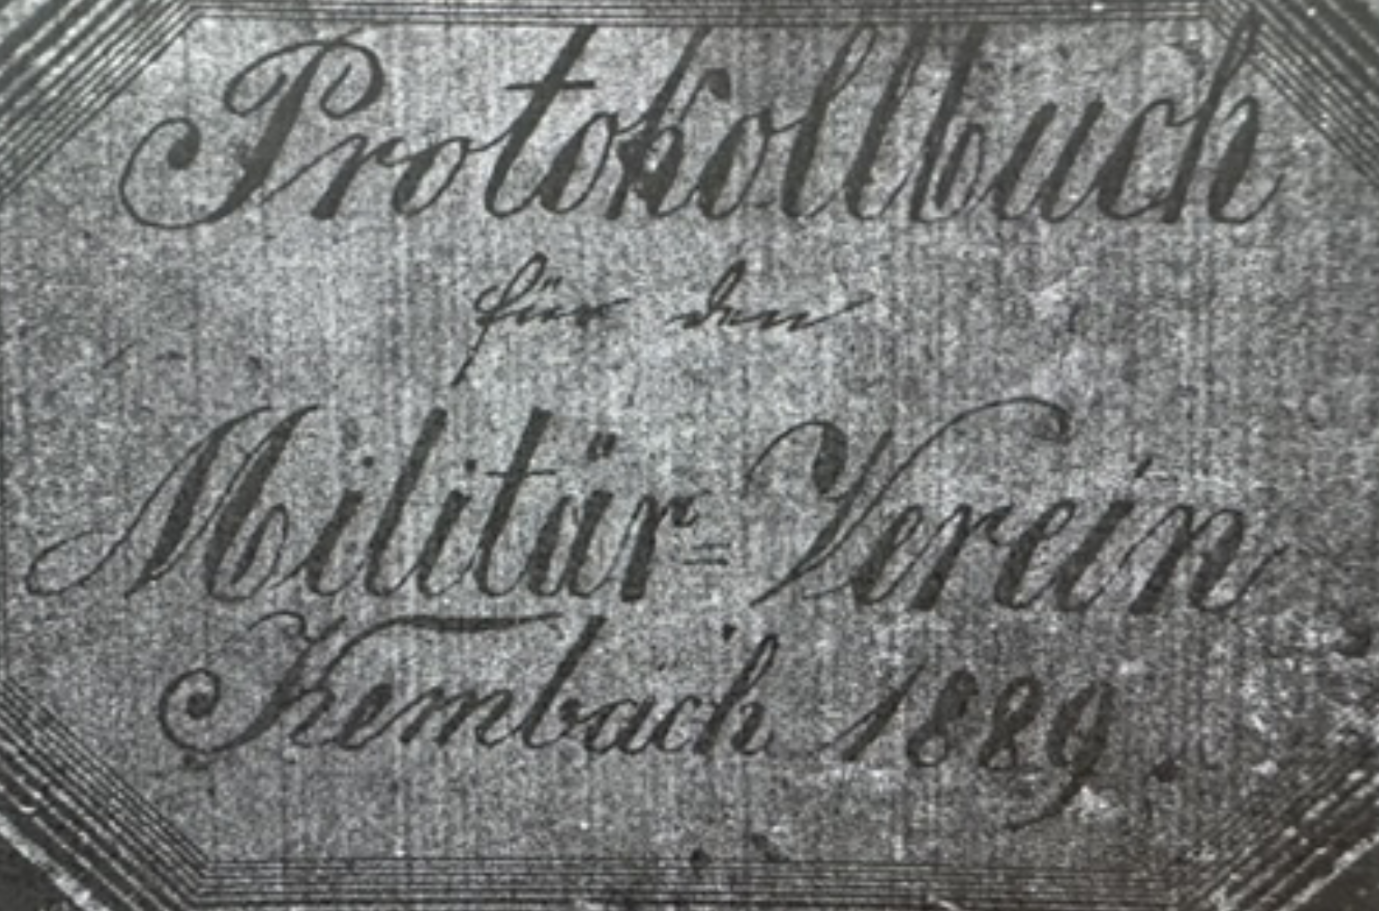 Protokollbuch
für den
Militär=Verein
Kembach 1889.